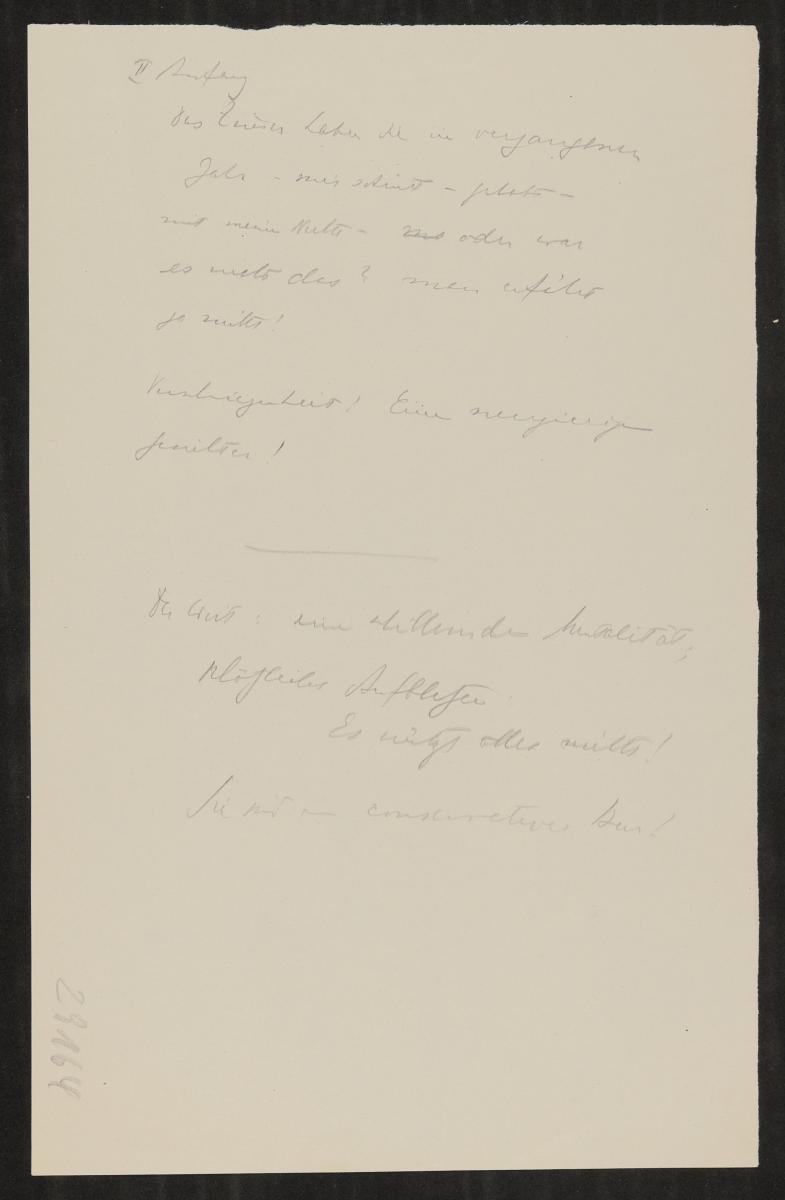 II Anfang
Das Zimmer haben Sie im vergangenen
Jahr – mir scheint –
mit meiner Nichte – oder war
es nicht das? man erfährt
ja nichts!
Verschwiegenheit! Eine neugierige
Der Wirt: eine Mentalität;
plötzliches Aufblitzen
Es nützt alles nichts!
Sie sind ein conservativer Herr!
29164